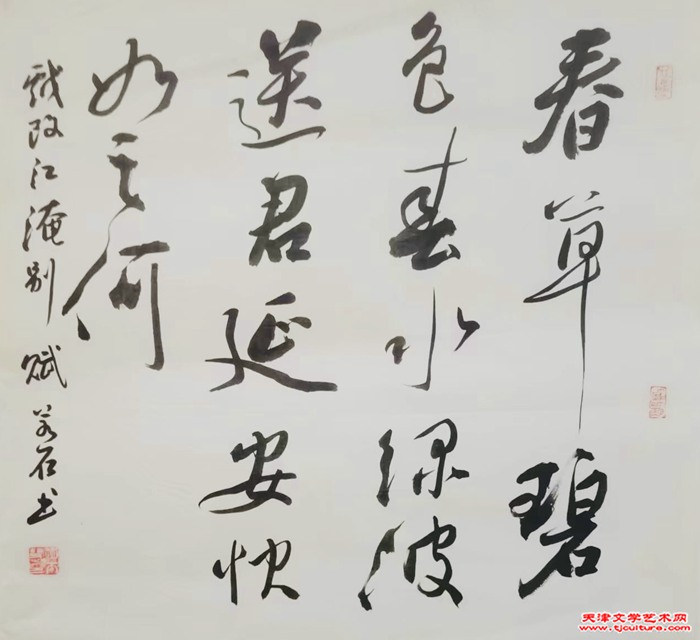 春草碧
色春水绿波
送君延安快
如之何
戏改江淹别赋 若石书
天津文学艺术网
www.tjculture.com